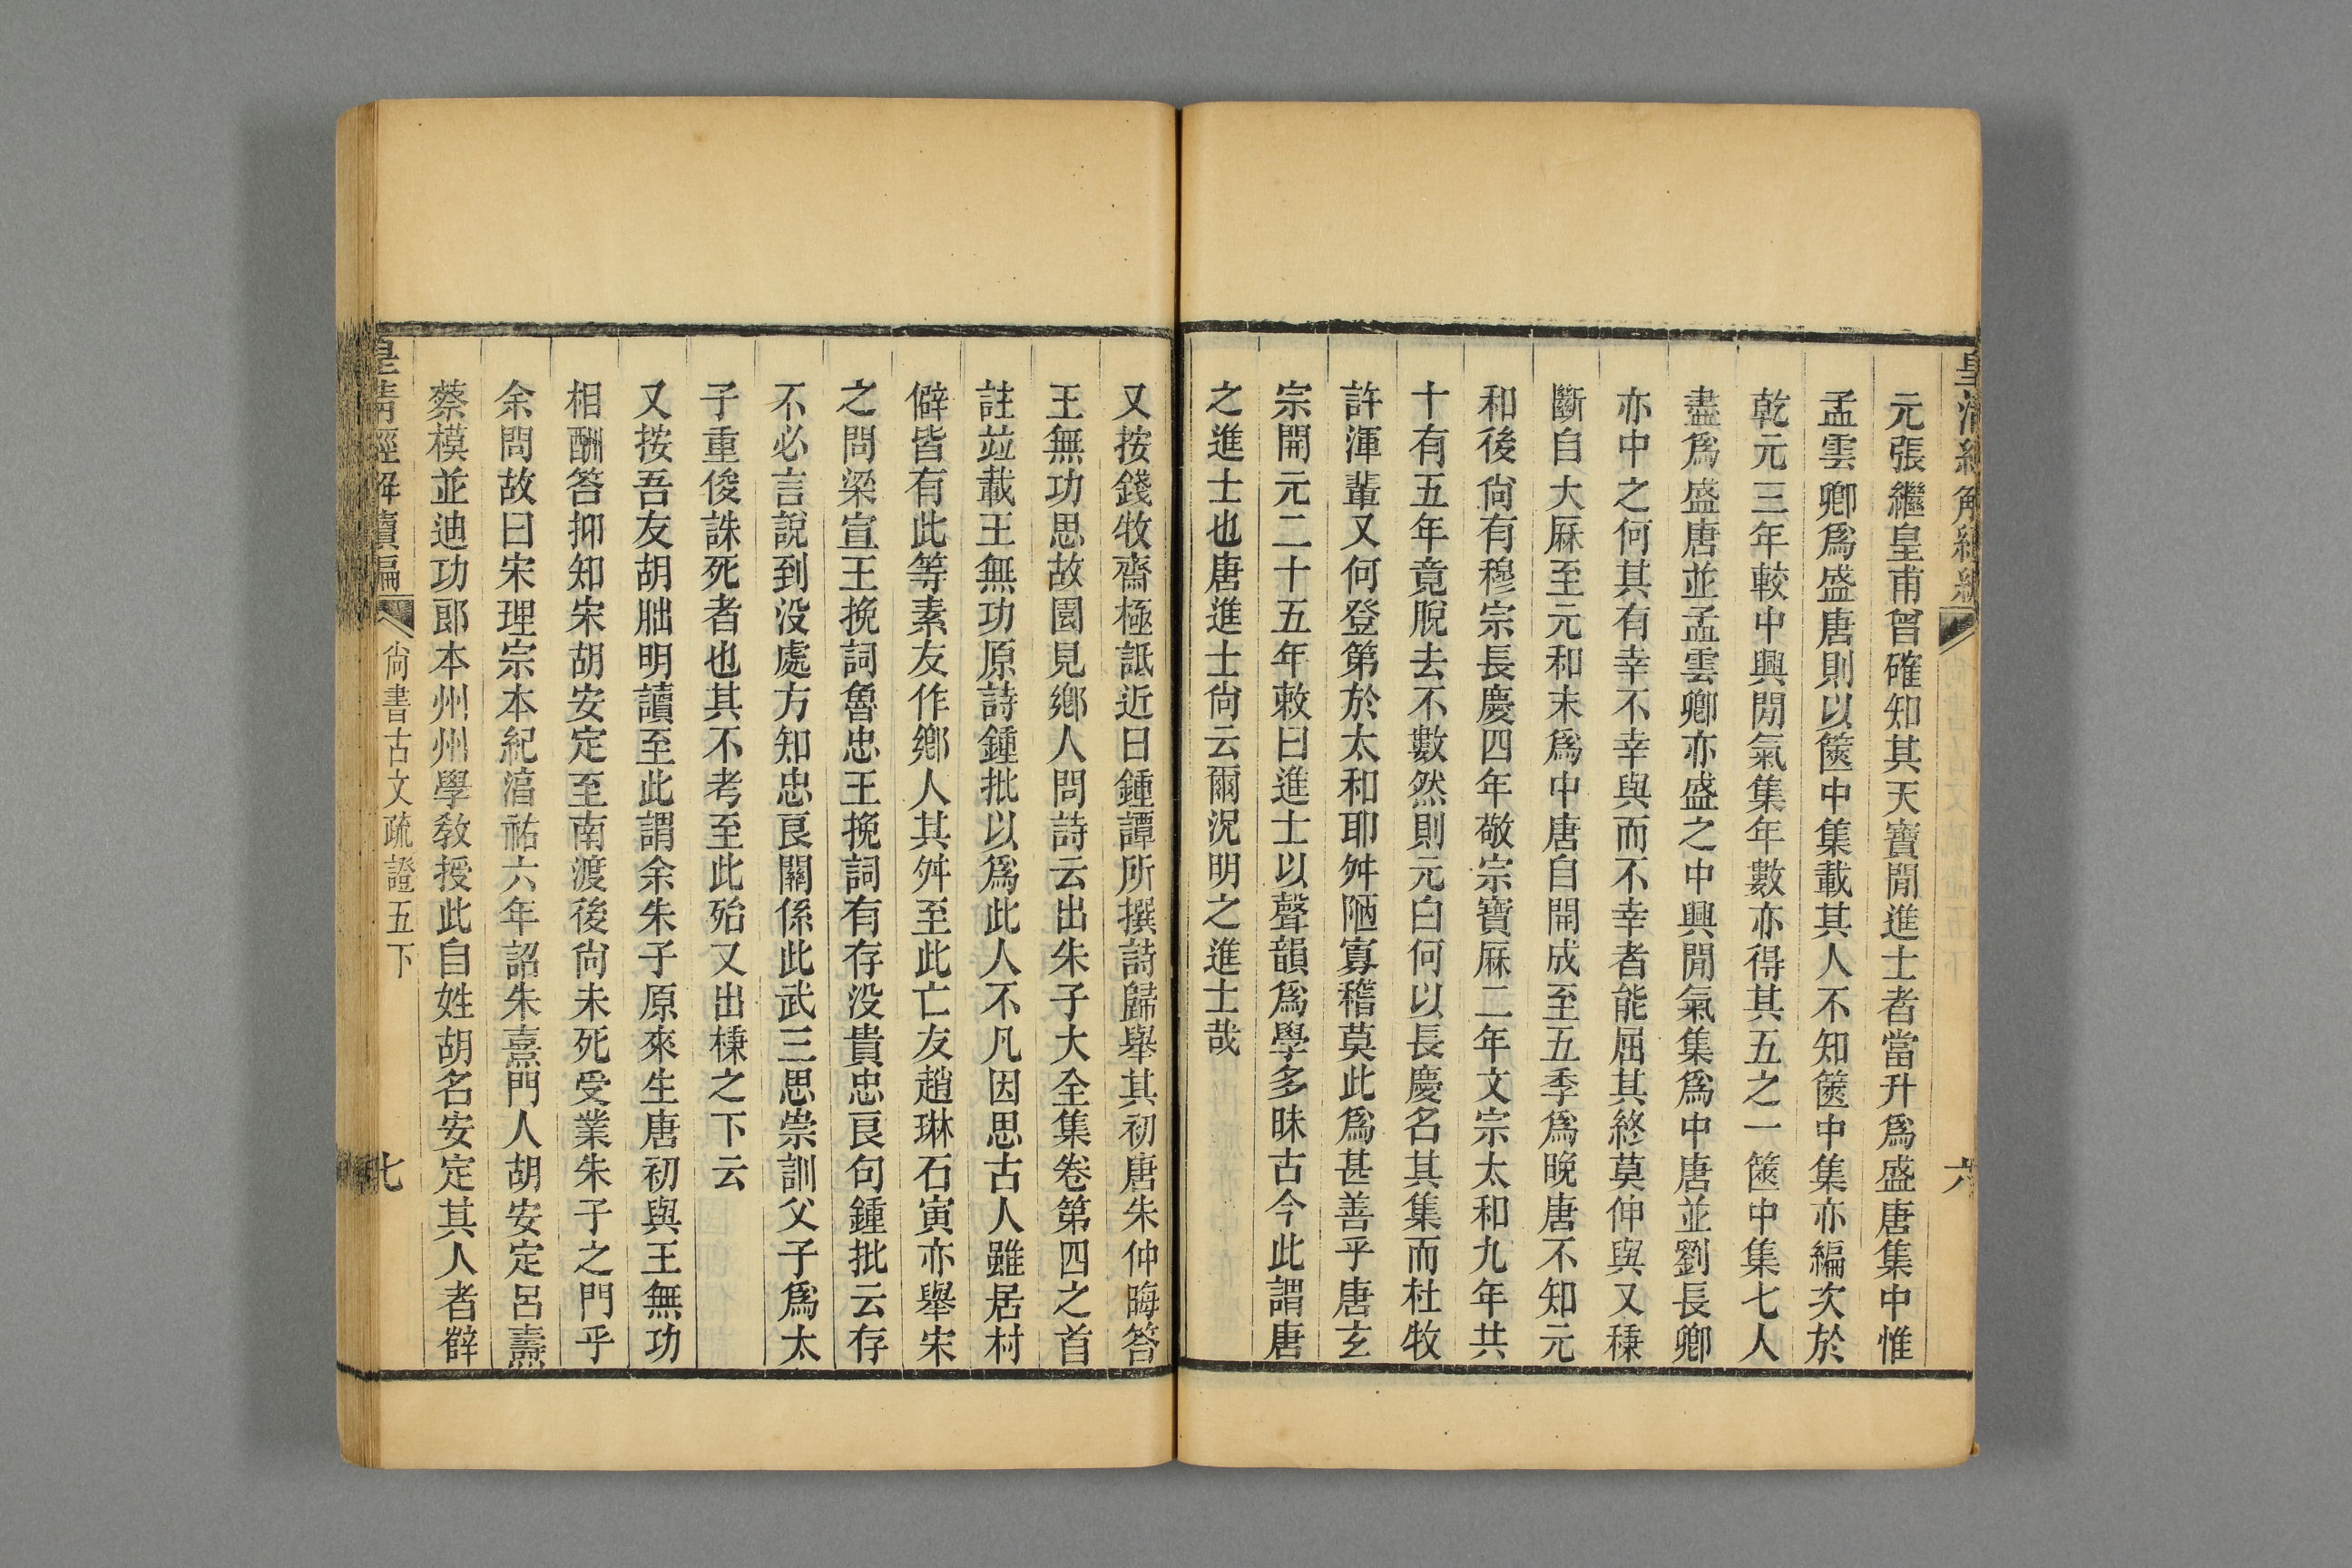 元張繼皇甫曾確知其天寶閒進士者當升爲盛唐集中惟
孟雲卿爲盛唐則以篋中集載其人不知篋中集亦編次於
乾元三年較中興閒氣集年數亦得其五之一篋中集七人
盡爲盛唐並孟雲卿亦盛之中興閒氣集爲中唐並劉長卿
亦中之何其有幸不幸與而不幸者能屈其終莫伸與又稾
斷自大厤至元和末爲中唐自開成至五季爲晚唐不知元
和後尙有穆宗長慶四年敬宗寶厤二年文宗太和九年共
十有五年竟脫去不數然則元白何以長慶名其集而杜牧
許渾輩又何登第於太和耶舛陋寡稽莫此爲甚善乎唐玄
宗開元二十五年敕曰進士以聲韻爲學多昧古今此謂唐
之進士也唐進士尙云爾況明之進士哉
又按錢牧齋極詆近日鍾譚所撰詩歸舉其初唐朱仲晦答
王無功思故園見鄉人問詩云出朱子大全集卷第四之首
註竝載王無功原詩鍾批以爲此人不凡因思古人雖居村
僻皆有此等素友作鄉人其舛至此亡友趙琳石寅亦舉宋
之問梁宣王挽詞魯忠王挽詞有存没貴忠良句鍾批云存
不必言說到没處方知忠良關係此武三思崇訓父子爲太
子重俊誅死者也其不考至此殆又出稾之下云
又按吾友胡朏明讀至此謂余朱子原來生唐初與王無功
相酬答抑知宋胡安定至南渡後尙未死受業朱子之門乎
余問故曰宋理宗本紀湻祐六年詔朱熹門人胡安定呂燾
蔡模並迪功郎本州州學教授此自姓胡名安定其人者辥
皇清經解續編
尙書古文疏證五下
七
六